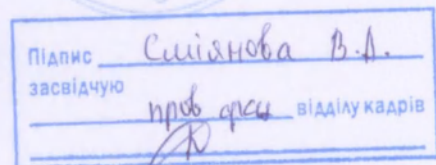 Підпис Сміянова В.А.
засвідчую
пров фах відділу кадрів